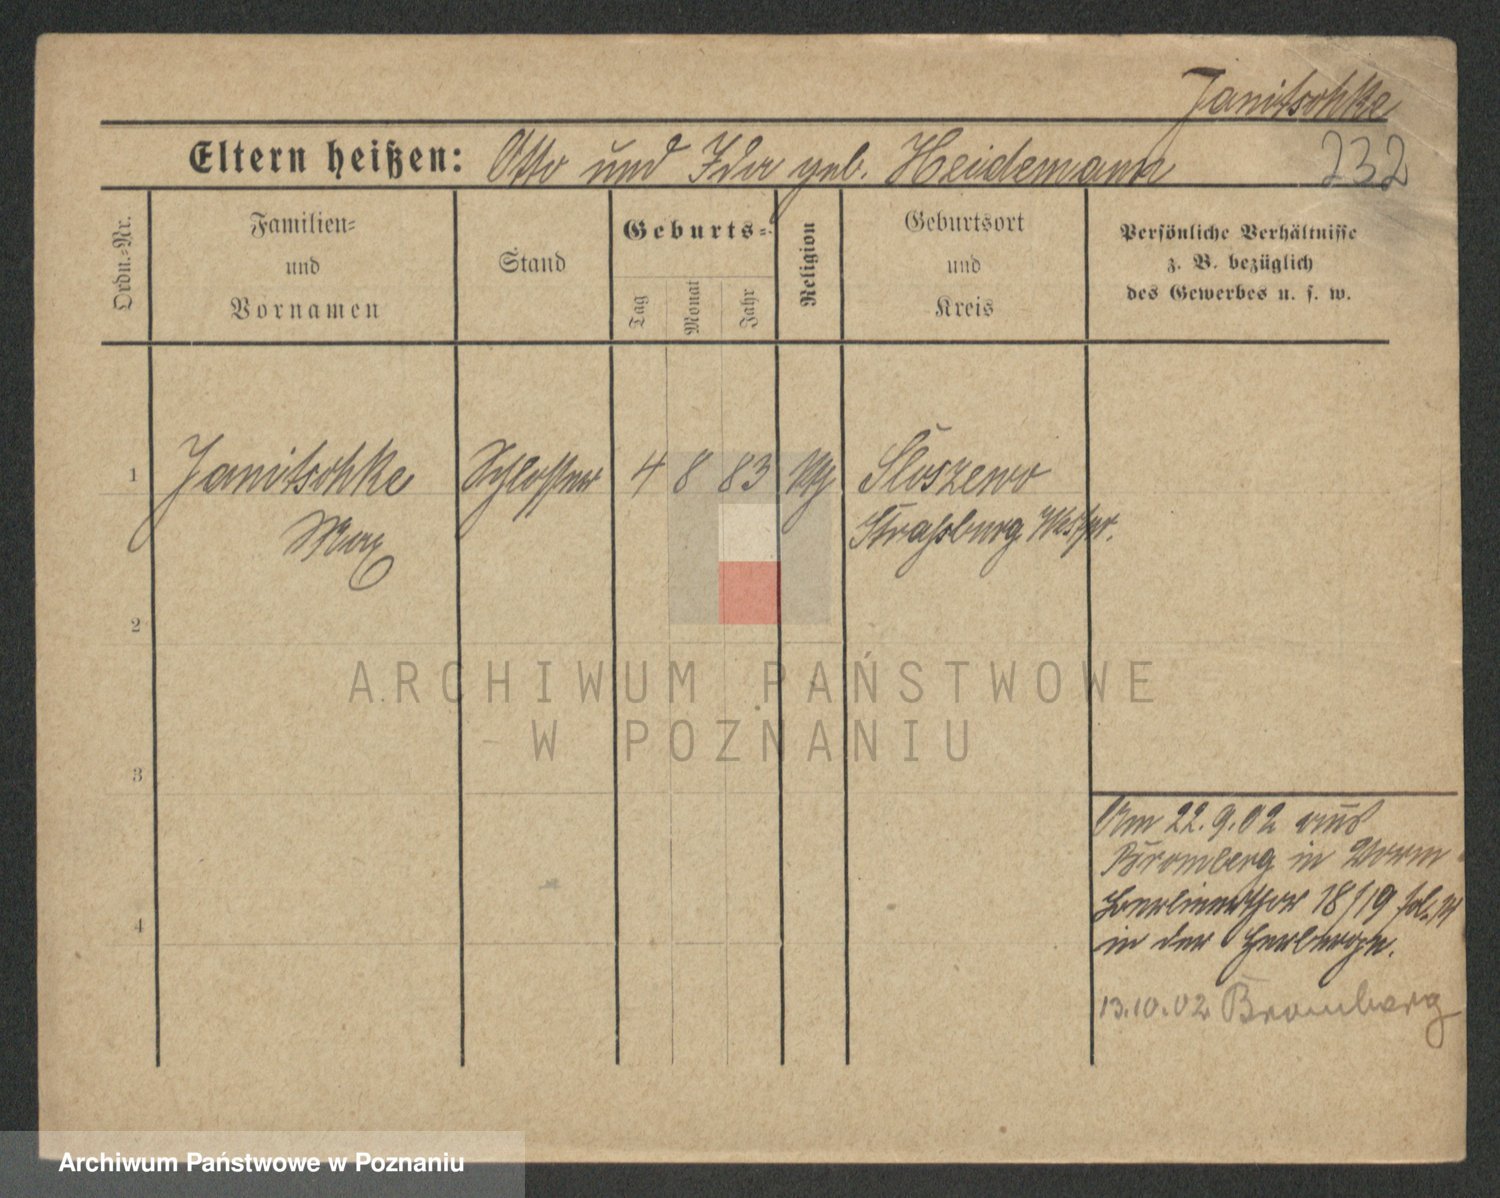 Janitschke
Eltern heißen: Otto und Ida geb. Heidemann
232
Ordn.-Nr.
Familien-
und
Vornamen
Stand
Geburts-
Tag
Monat
Jahr
Religion
Geburtsort
und
Kreis
Persönliche Verhältnisse
z. B. bezüglich
des Gewerbes u. s. w.
1 Janitschke Schlosser 4 8 83 Sloszewo
Max Straßburg Westpr.
2
3
4
Am 22.9.02 aus
Bromberg in
Berlinerthor 18/19 fol.
in der Herberge.
13.10.02 Bromberg
ARCHIWUM PAŃSTWOWE
W POZNANIU
Archiwum Państwowe w Poznaniu